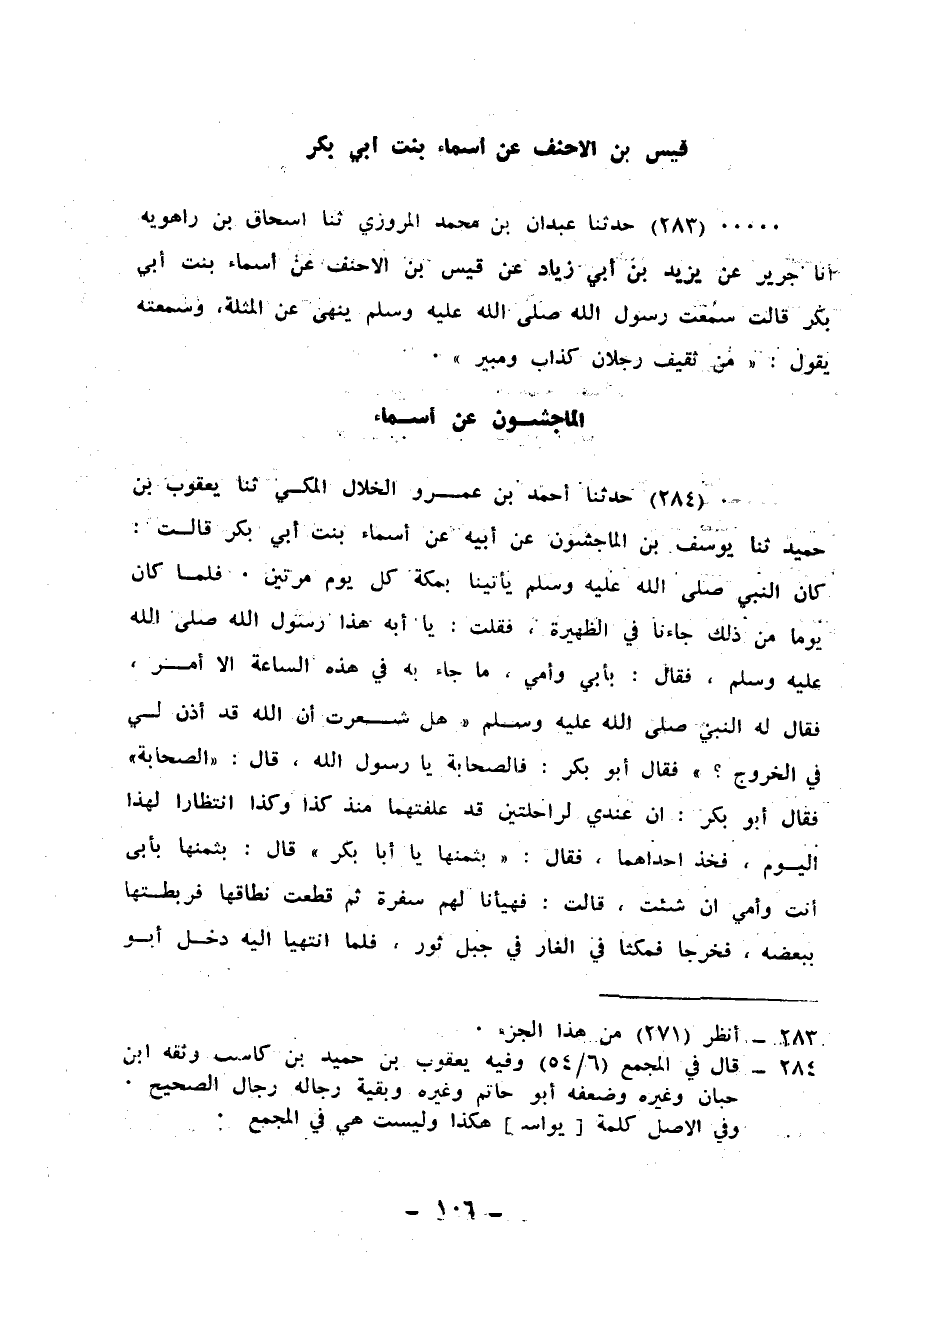 قيس بن الاحنف عن أسماء بنت أبي بكر
٠٠٠٠٠ (٢٨٣) حدثنا عبدان بن محمد المروزي ثنا اسحاق بن راهويه
أنا جرير عن يزيد بن أبي زياد عن قيس بن الاحنف عن أسماء بنت أبي
بكر قالت سمعت رسول الله صلى الله عليه وسلم ينهى عن المثلة، وسمعته
يقول : « من ثقيف رجلان كذاب ومبير » ٠
الماجشــون عن أســماء
٠٠ (٢٨٤) حدثنا أحمد بن عمــرو الخلال المكــي ثنا يعقوب بن
حميد ثنا يوسف بن الماجشون عن أبيه عن أسماء بنت أبي بكر قالــت :
كان النبي صلى الله عليه وسلم يأتينا بمكة كل يوم مرتين ٠ فلمــا كان
يوما من ذلك جاءنا في الظهيرة ، فقلت : يا أبه هذا رسول الله صلى الله
عليه وسلم ، فقال : بأبي وأمي ، ما جاء به في هذه الساعة الا أمــر ،
فقال له النبي صلى الله عليه وســلم « هل شــعرت أن الله قد أذن لــي
في الخروج ؟ » فقال أبو بكر : فالصحابة يا رسول الله ، قال : «الصحابة»
فقال أبو بكر : ان عندي لراحلتين قد علفتهما منذ كذا وكذا انتظارا لهذا
اليــوم ، فخذ احداهما ، فقال : « بثمنها يا أبا بكر » قال : بثمنها بأبى
أنت وأمي ان شئت ، قالت : فهيأنا لهم سفرة ثم قطعت نطاقها فربطــتها
ببعضه ، فخرجا فمكثا في الغار في جبل ثور ، فلما انتهيا اليه دخــل أبــو
٢٨٣ ــ أنظر (٢٧١) من هذا الجزء ٠
٢٨٤ ــ قال في المجمع (٥٤/٦) وفيه يعقوب بن حميد بن كاسب وثقه ابن
حبان وغيره وضعفه أبو حاتم وغيره وبقية رجاله رجال الصحيح ٠
وفي الاصل كلمة [ يواسد ] هكذا وليست هي في المجمع ٠
ــ ١٠٦ ــ